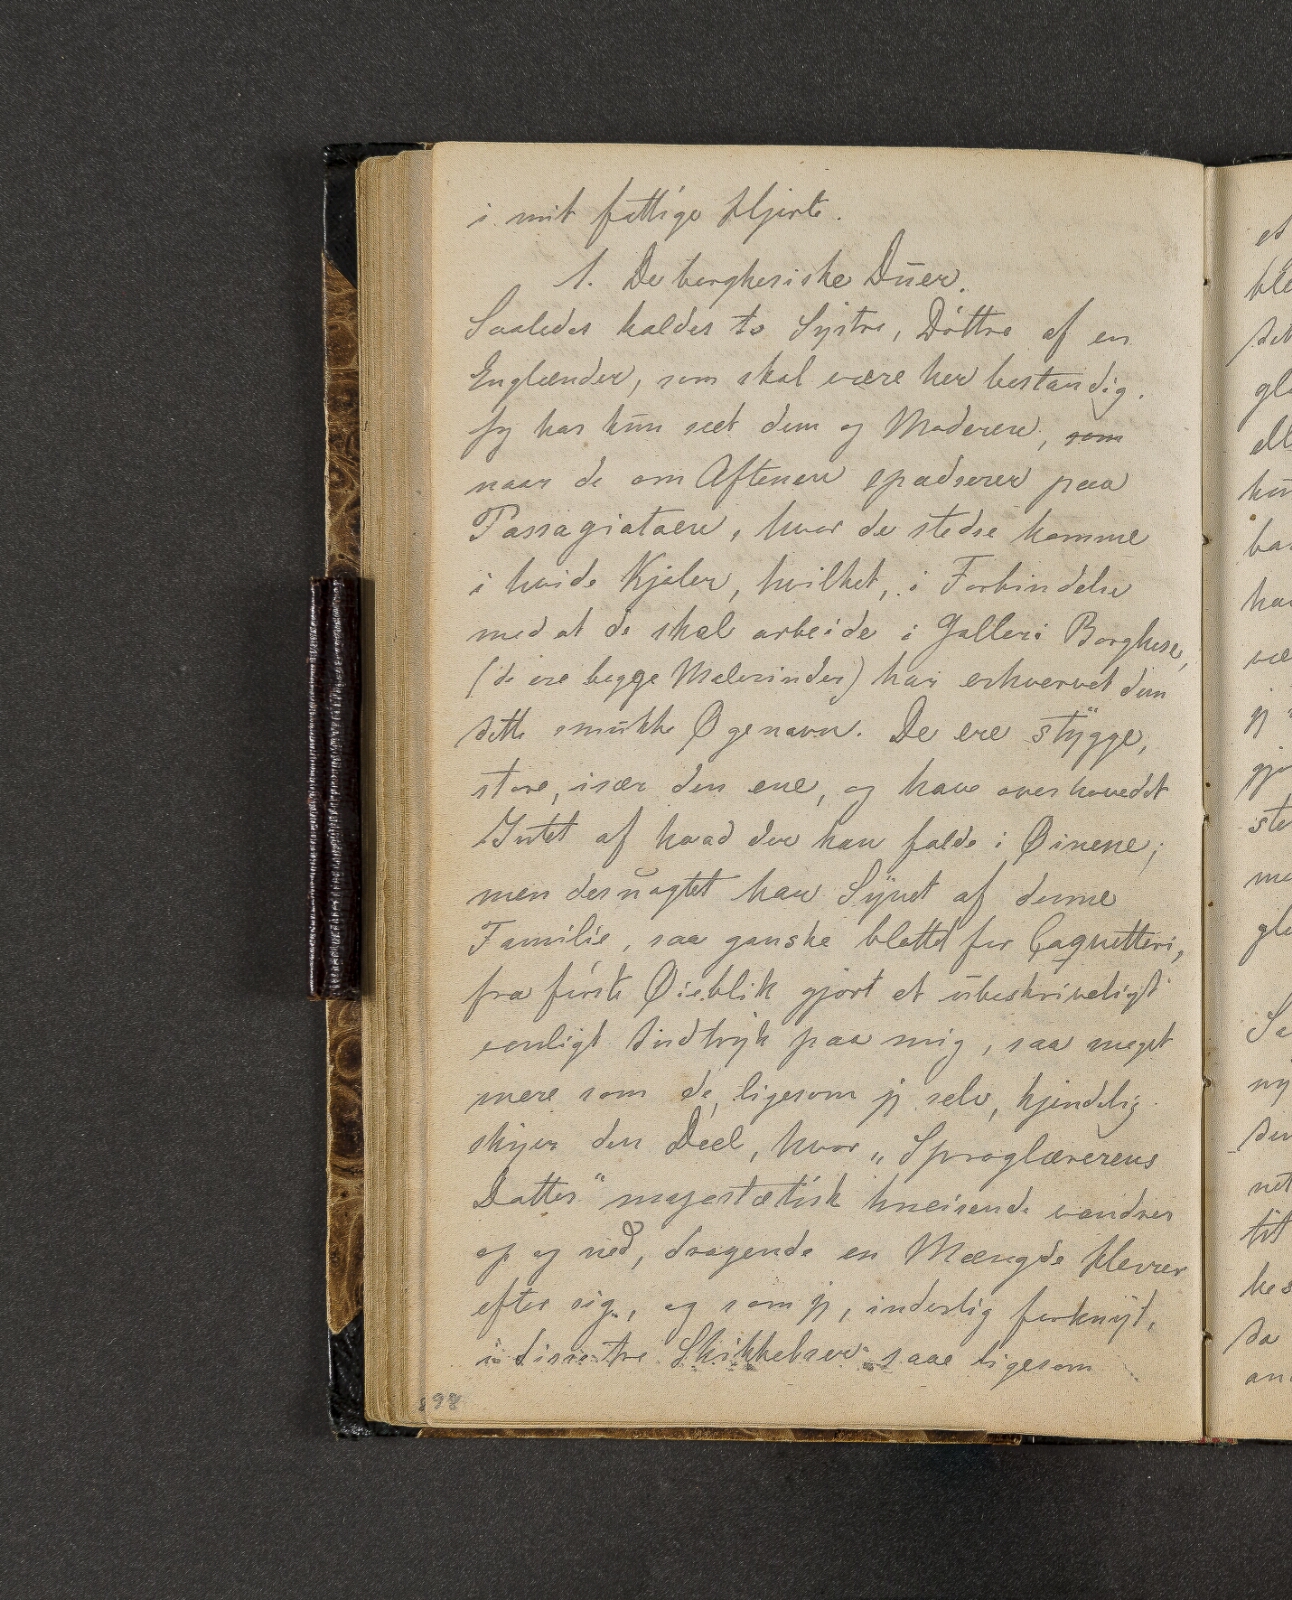 i mit fattige Hjerte.
1. De borghesiske Duer.
Saaledes kaldes to Systre, Döttre af en
Englænder, som skal være her bestandig.
Jeg har kun seet dem og Moderen, som
naar de om Aftenen spadserer paa
Passagiataen, hvor de stedse komme
i hvide Kjoler, hvilket, i Forbindelse
med at de skal arbeide i Galleri Borghese,
(de ere begge Malerinder) har erhvervet dem
dette smukke Øgenavn. De ere stygge,
store, især den ene, og have overhovedet
Intet af hvad der kan falde i Øinene;
men desuagtet har Synet af denne
Familie, saa ganske blottet for Coquetteri,
fra første Øieblik gjort et ubeskriveligt
venligt Indtryk paa mig, saa meget
mere som de, ligesom jeg selv, kjendelig
skyer den Deel, hvor „Sproglærerens
Datter" majestætisk kneisende vandrer
op og ned, dragende en Mængde Herrer
efter sig, og som jeg, inderlig forknyt,
i disse tre Skikkelser saae ligesom
898
et
ble
det
gl
ell
ba
ha
jeg
gjo
me
gl
Sa
ny
tit
hes
da
an